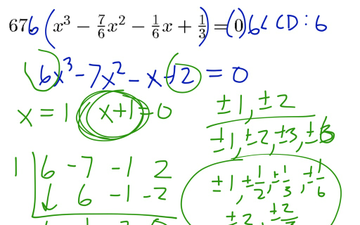 676(x³ − 7/6x² − 1/6x + 1/3) = (0)6 LCD: 6
6x³ - 7x² - x + 2 = 0
x = 1 (x+1) = 0
±1, ±2
±1, ±2, ±3, ±6
1 | 6 -7 -1 2
↓ 6 -1 -2
±1, ±1/2, ±1/3, ±1/6